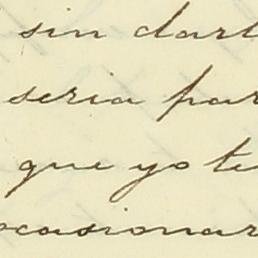 sin dart
seria par
que yo te
ocasionar